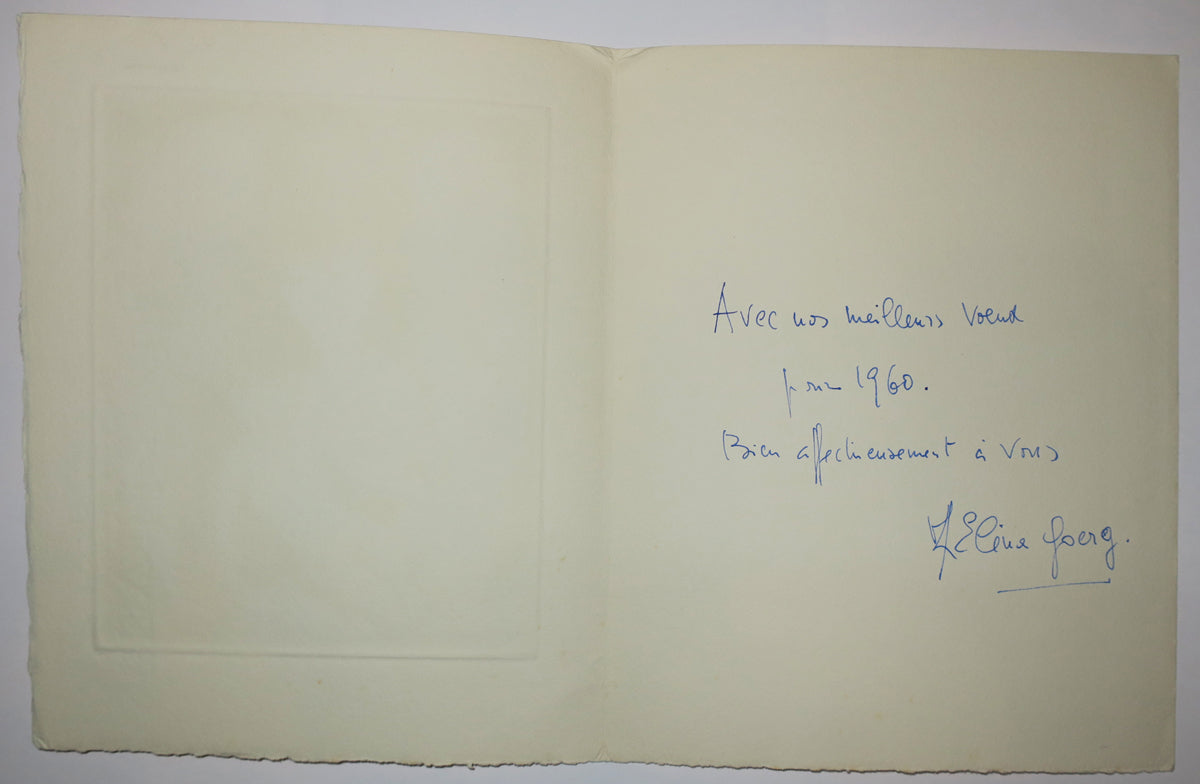 Avec nos meilleurs Voeux
pour 1960.
Bien affectueusement à Vous
Elina Goerg.